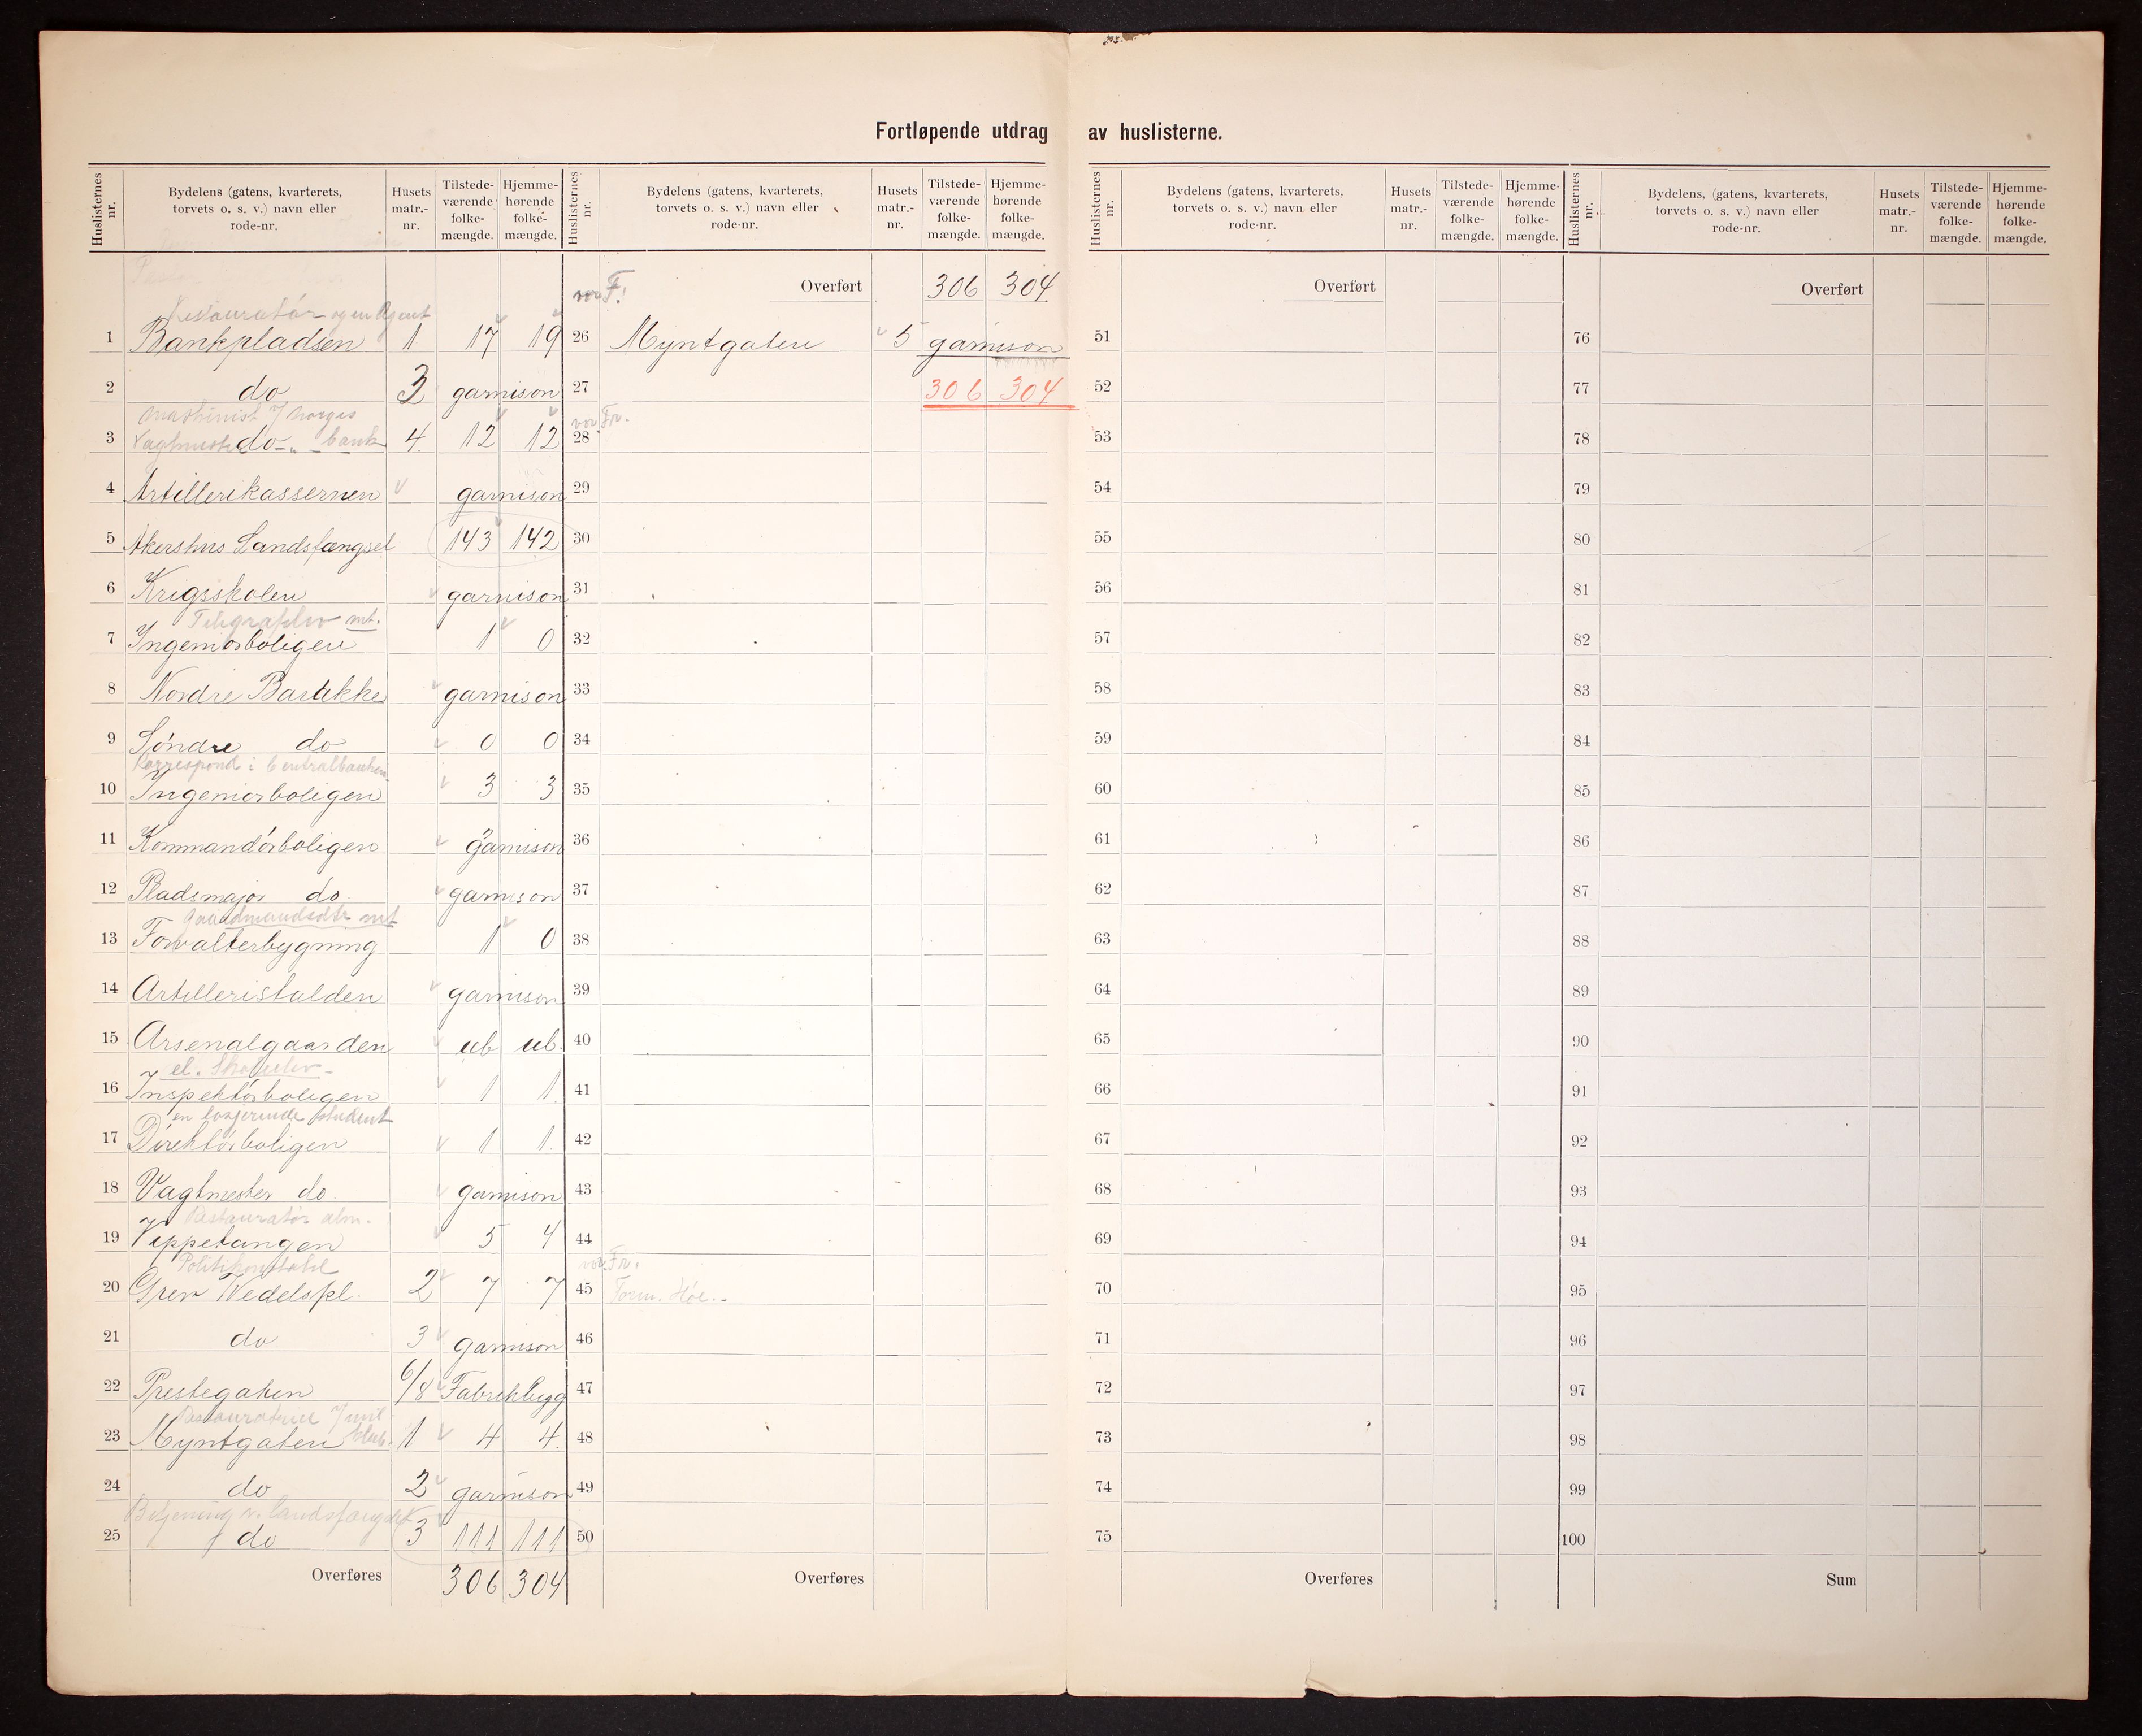 Fortløpende utdrag av huslisterne.
Huslisternes nr. Bydelens (gatens, kvarterets, torvets o. s. v.) navn eller rode-nr. Husets matr.-nr. Tilstede-værende folke-mængde. Hjemme-hørende folke-mængde.
Restauratør og en Agent
1 Bankpladsen 1 17 19
2 do 3 garnison
Maskinist i Norges
3 Vagtmester do bank 4. 12 12
4 Artillerikassernen garnison
5 Akershus Landsfængsel 143 142
6 Krigsskolen garnison
Telegrafelev mt.
7 Ingeniørboligen 1 0
8 Nordre Batikke garnison
9 Søndre do 0 0
Korrespond i Centralbanken
10 Ingeniørboligen 3 3
11 Kommandørboligen garnison
12 Pladsmajor do. garnison
Gaardmandsdtr mt
13 Forvalterbygning 1 0
14 Artilleristalden garnison
15 Arsenalgaarden ub ub.
el.
16 Inspektørboligen 1 1
en losjerende student
17 Direktørboligen 1 1.
18 Vagtmester do. garnison
Restauratør alm.
19 Vippetangen 5 4
Politikonstabel
20 Grev Wedelspl. 2 7 7
21 do 3 garnison
22 Prestegaten 6/8 Fabrikbygg
Restauratrice i mil. klub.
23 Myntgaten 1 4 4.
24 do 2 garnison
Betjening v. landsfængslet
25 do 3 111 111
Overføres 306 304
Huslisternes nr. Bydelens (gatens, kvarterets, torvets o. s. v.) navn eller rode-nr. Husets matr.-nr. Tilstede-værende folke-mængde. Hjemme-hørende folke-mængde.
Overført 306 304.
26 Myntgaten 5 garnison
27 306 304
28
29
30
31
32
33
34
35
36
37
38
39
40
41
42
43
44
45
46
47
48
49
50
Overføres
Huslisternes nr. Bydelens (gatens, kvarterets, torvets o. s. v.) navn eller rode-nr. Husets matr.-nr. Tilstede-værende folke-mængde. Hjemme-hørende folke-mængde.
Overført
51
52
53
54
55
56
57
58
59
60
61
62
63
64
65
66
67
68
69
70
71
72
73
74
75
Overføres
Huslisternes nr. Bydelens, (gatens, kvarterets, torvets o. s. v.) navn eller rode-nr. Husets matr.-nr. Tilstede-værende folke-mængde. Hjemme-hørende folke-mængde.
Overført
76
77
78
79
80
81
82
83
84
85
86
87
88
89
90
91
92
93
94
95
96
97
98
99
100
Sum